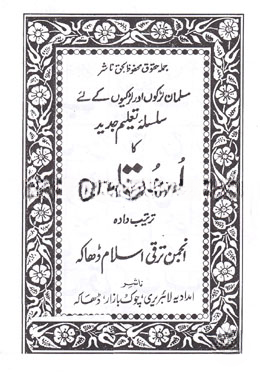 جملہ حقوق محفوظ بحق ناشر
مسلمان لڑکوں اور لڑکیوں کے لئے
سلسلۂ تعلیم جدید
کا
ترتیب دادہ
انجمن ترقی اسلام ڈھاکہ
ناشر
امدادیہ لائبریری، چوک بازار، ڈھاکہ